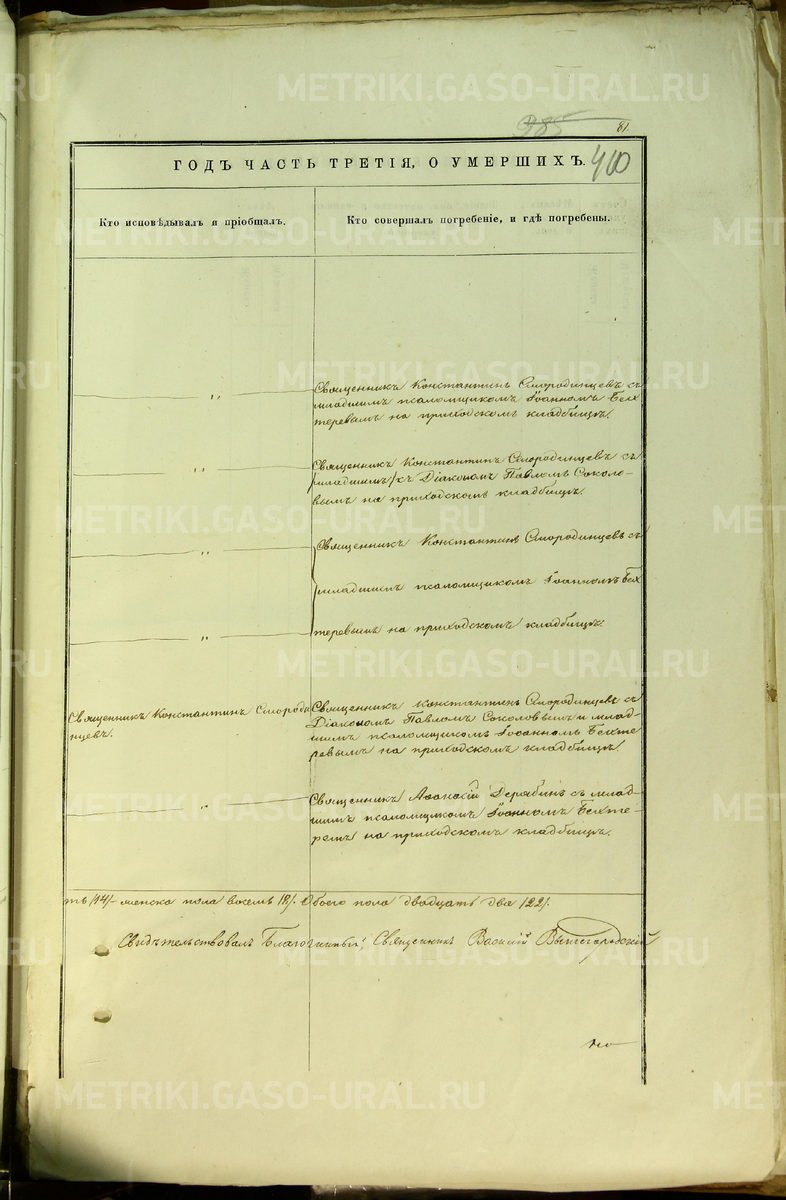 985
81
ГОДЪ ЧАСТЬ ТРЕТІЯ, О УМЕРШИХЪ.
400
Кто исповѣдывалъ и пріобщалъ.
Кто совершалъ погребеніе, и гдѣ погребены.
"
Священникъ Константинъ Смородинцевъ съ
младшимъ псаломщикомъ Іоанномъ Бех
теревымъ на приходскомъ кладбищѣ.
"
Священникъ Константинъ Смородинцевъ съ
/младшимъ/ съ Діакономъ Павломъ Соколо-
вымъ на приходскомъ кладбищѣ.
"
Священникъ Константинъ Смородинцевъ съ
младшимъ псаломщикомъ Іоанномъ Бех
"
теревымъ на приходскомъ кладбищѣ.
Священникъ Константинъ Смороди
нцевъ.
Священникъ Константинъ Смородинцевъ съ
Діакономъ Павломъ Соколовымъ и млад-
шимъ псаломщикомъ Іоанномъ Бехте-
ревымъ на приходскомъ кладбищѣ.
"
Священникъ Аѳанасій Дерябинъ съ млад-
шимъ псаломщикомъ Іоанномъ Бехте-
ремъ на приходскомъ кладбищѣ.
ть /14/ женска пола восемь /8/. Обоего пола двадцать два /22/.
Свидѣтельствовалъ Благочинный, Священникъ Василій
METRIKI.GASO-URAL.RU